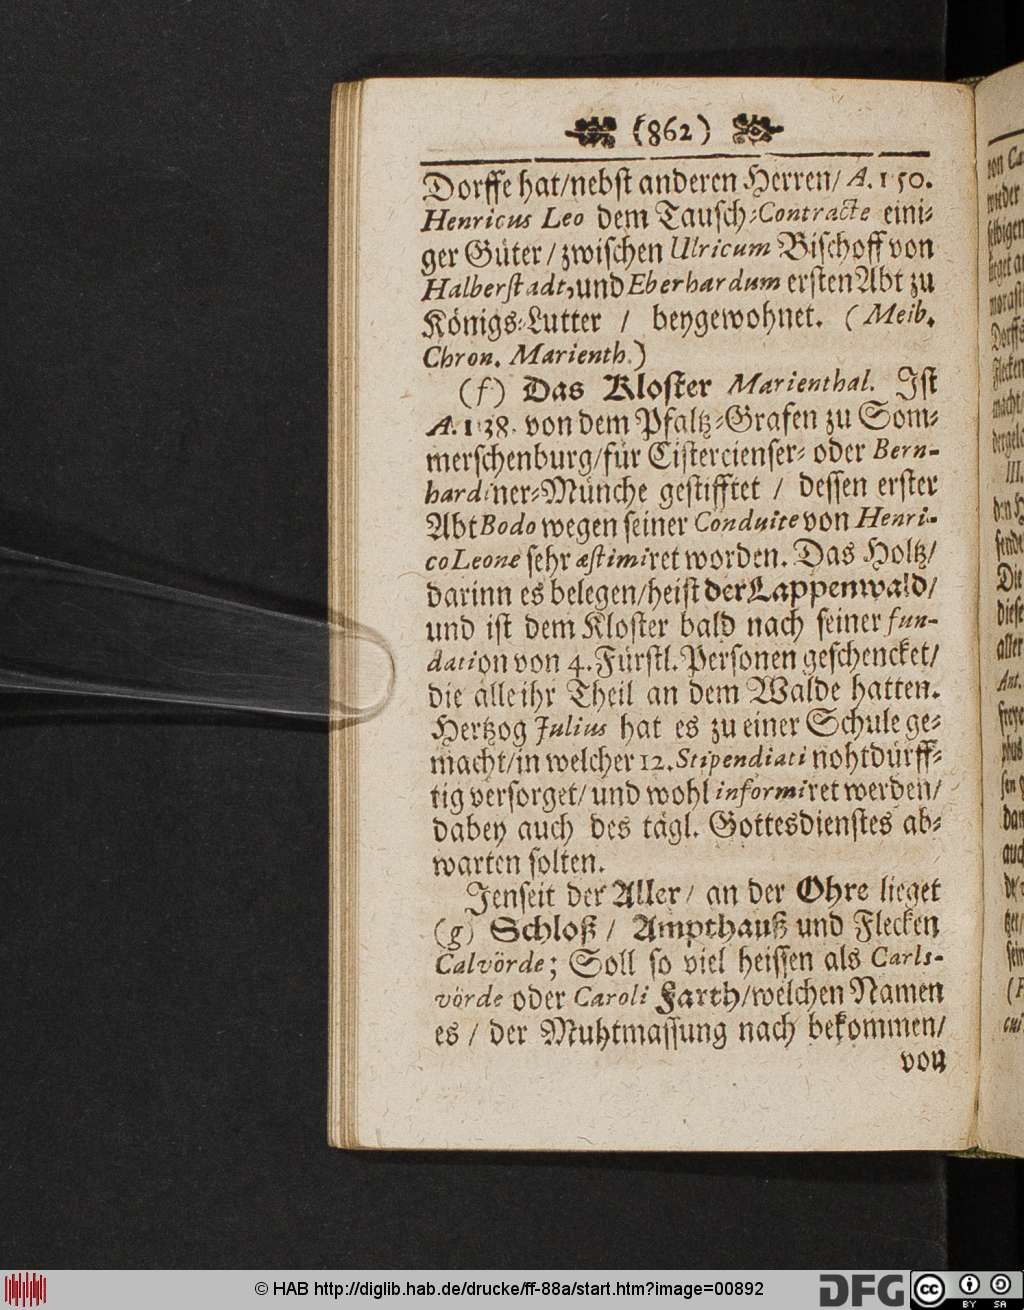 (862)
Dorffe hat/nebst anderen Herren/ A. 1150.
Henricus Leo dem Tausch-Contracte eini-
ger Güter / zwischen Ulricum Bischoff von
Halberstadt, und Eberhardum ersten Abt zu
Königs-Lutter / beygewohnet. ( Meib.
Chron. Marienth.)
(f) Das Kloster Marienthal. Ist
A. 1138. von dem Pfaltz-Grafen zu Som-
merschenburg/für Cistercienser- oder Bern-
hardiner-Münche gestifftet / dessen erster
Abt Bodo wegen seiner Conduite von Henri-
co Leone sehr æstimiret worden. Das Holtz/
darinn es belegen/heist der Lappenwald/
und ist dem Kloster bald nach seiner fun-
dation von 4. Fürstl. Personen geschencket/
die alle ihr Theil an dem Walde hatten.
Hertzog Julius hat es zu einer Schule ge-
macht/in welcher 12. Stipendiati nohtdürff-
tig versorget/ und wohl informiret werden/
dabey auch des tägl. Gottesdienstes ab-
warten solten.
Jenseit der Aller / an der Ohre lieget
(g) Schloß / Ampthauß und Flecken
Calvörde; Soll so viel heissen als Carls-
vörde oder Caroli Farth/welchen Namen
es / der Muhtmassung nach bekommen/
von
© HAB http://diglib.hab.de/drucke/ff-88a/start.htm?image=00892
DFG
cc
BY SA